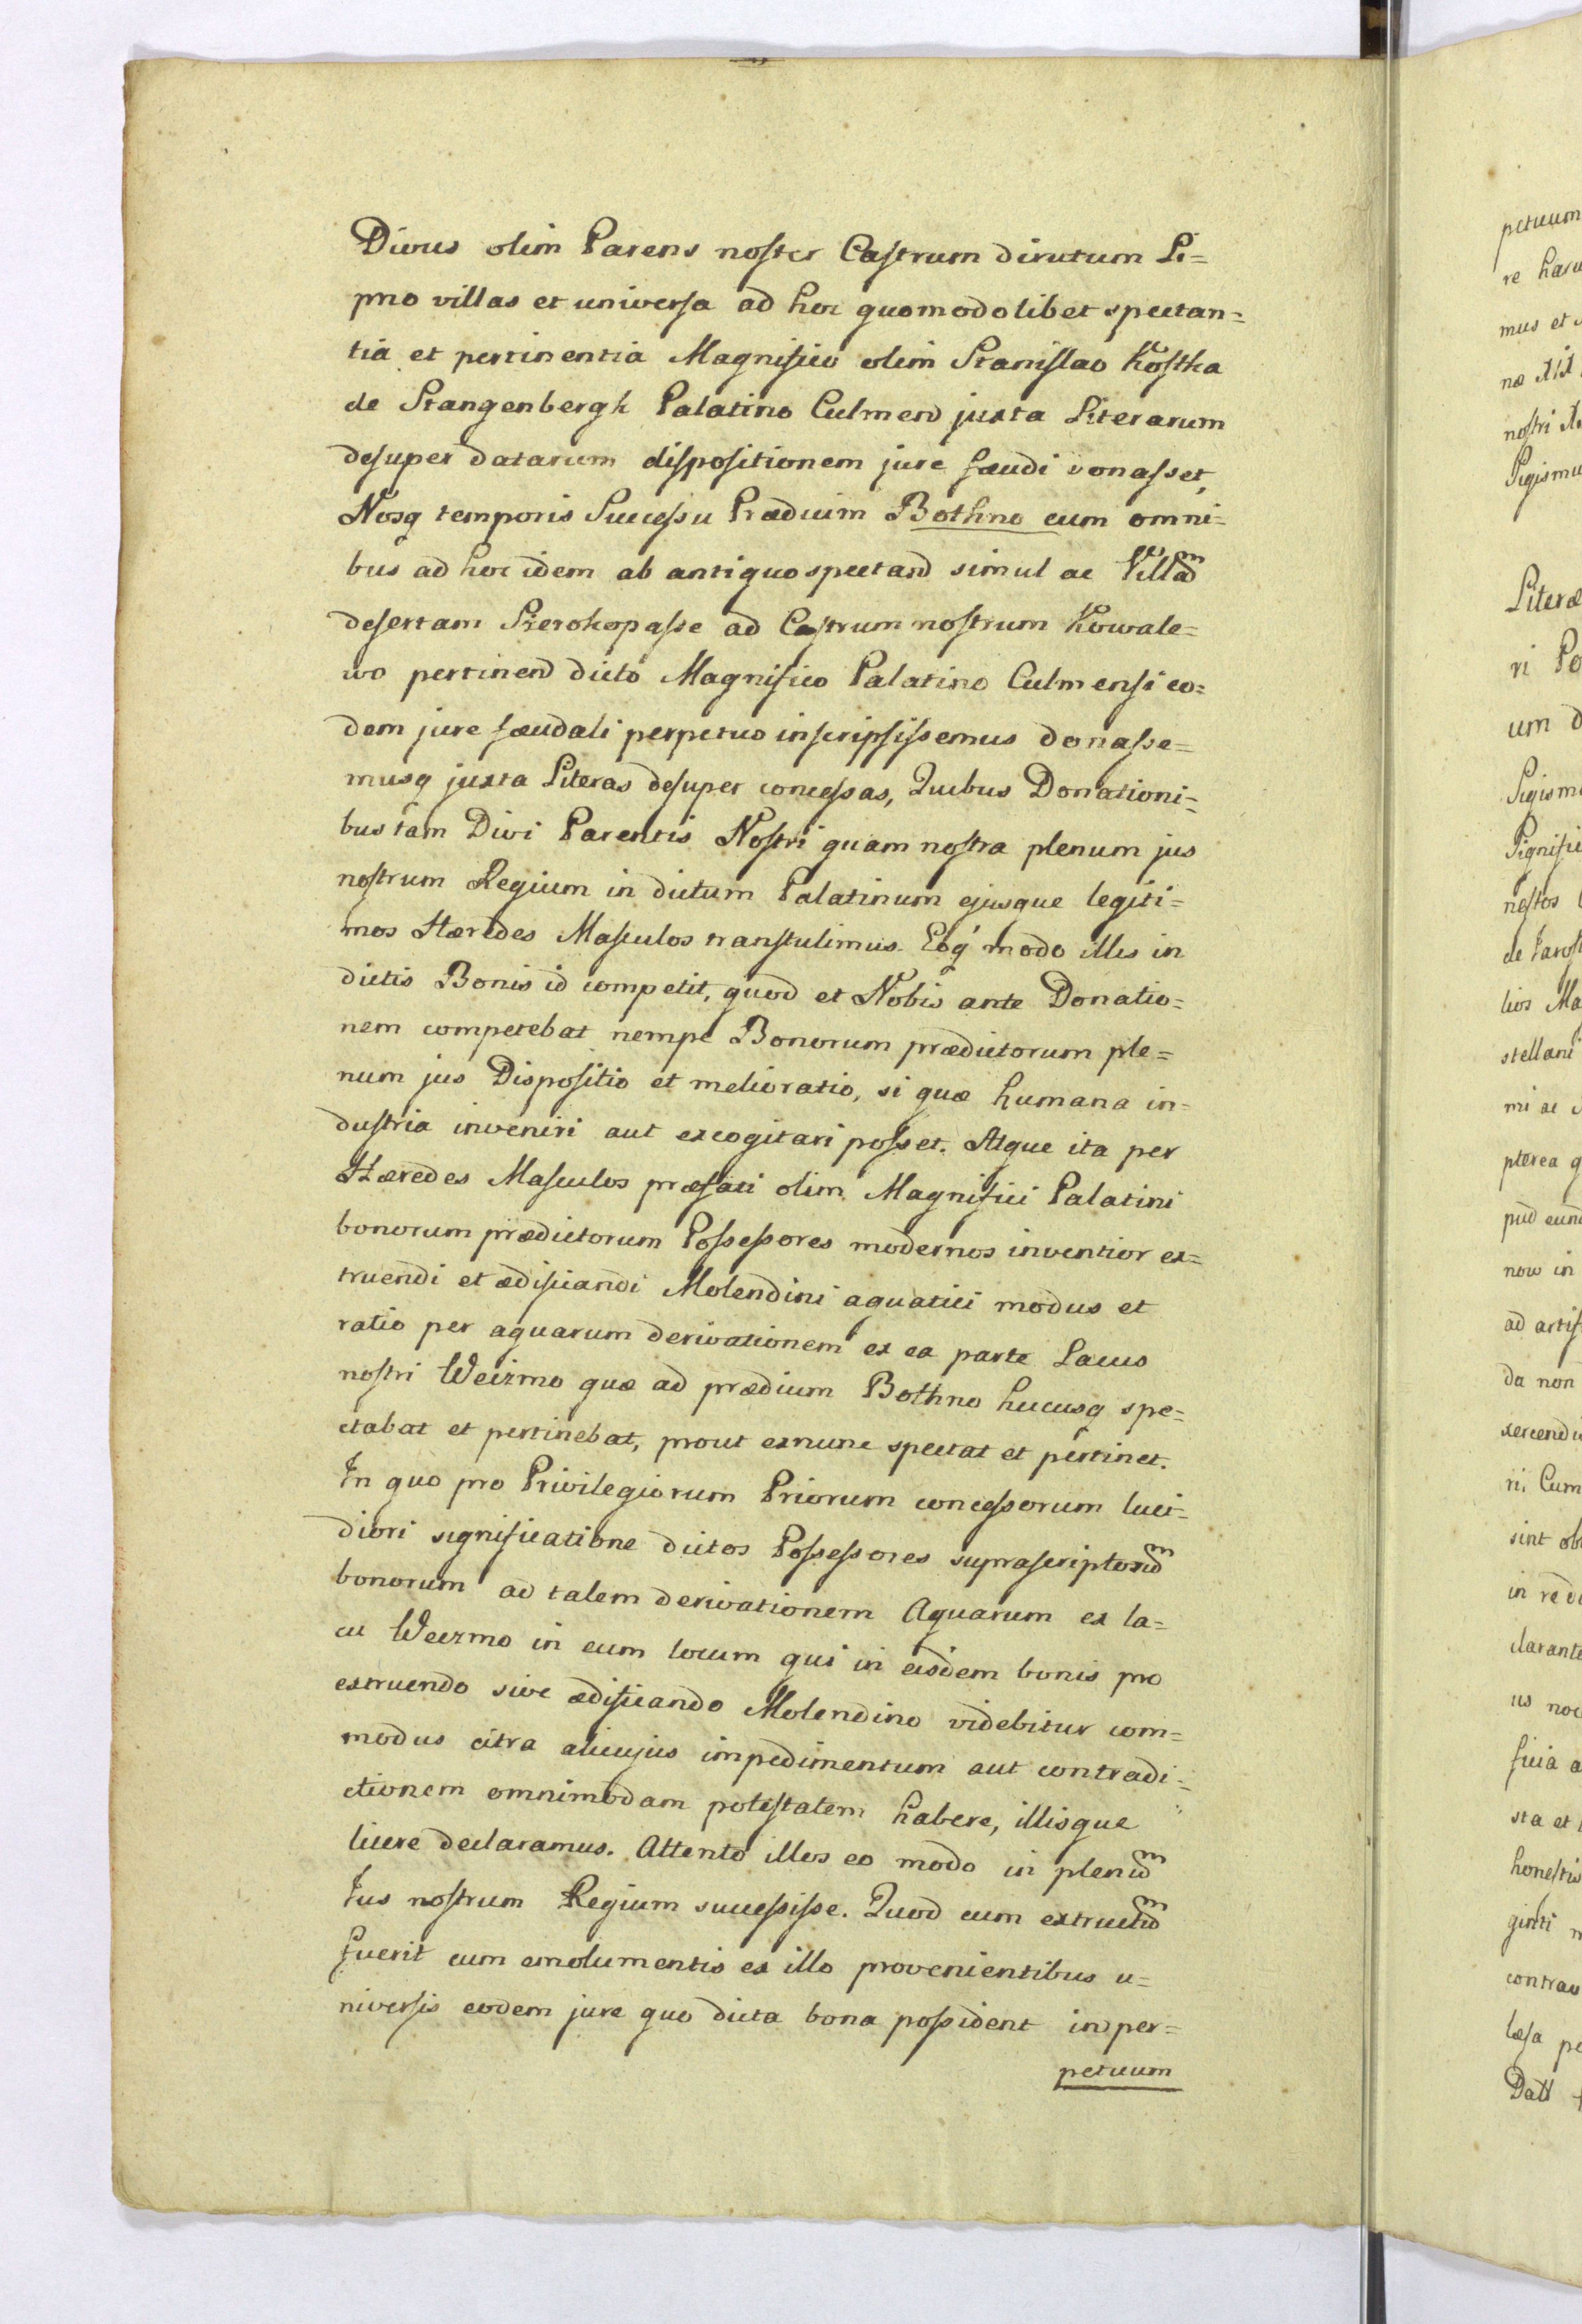 Divus olim Parens noster Castrum dirutum Li=
pno villas et universa ad hoc quomodolibet spectan=
tia et pertinentia Magnifico olim Stanislao Kostka
de Stangenbergk Palatino Culmen juxta Literarum
desuper datarum dispositionem jure fæudi donasset,
Nosq temporis Successu Prædium Bothno cum omni=
bus ad hoc idem ab antiquo spectand simul ac Villam
desertam Sierokopasse ad Castrum nostrum Kowale=
wo pertinend dicto Magnifico Palatino Culmensi eo=
dem jure fæudali perpetuo inscripsissemus donasse=
musq juxta Literas desuper concessas, Quibus Donationi=
bus tam Divi Parentis Nostri quam nostra plenum jus
nostrum Regium in dictum Palatinum ejusque legiti=
mos Hæredes Masculos transtulimus. Eoq modo illis in
dictis Bonis id competit, quod et Nobis ante Donatio=
nem competebat nempe Bonorum prædictorum ple=
num jus Dispositio et melioratio, si quæ humana in=
dustria inveniri aut excogitari posset. Atque ita per
Hæredes Masculos præfati olim Magnifici Palatini
bonorum prædictorum Possessores modernos inventior ex=
truendi et ædificandi Molendini aquatici modus et
ratio per aquarum derivationem ex ea parte Lacus
nostri Weizmo quæ ad prædium Bothno hucusq spe=
ctabat et pertinebat, prout exnunc spectat et pertinet.
In quo pro Privilegiorum Priorum concessorum luci=
diori significatione dictos Possessores suprascriptorum
bonorum ad talem derivationem Aquarum ex la=
cu Weizmo in eum locum qui in eisdem bonis pro
extruendo sive ædificando Molendino videbitur com=
modus citra alicujus impedimentum aut contradi=
ctionem omnimodam potestatem habere, illisque
licere declaramus. Attento illos eo modo in plenum
Jus nostrum Regium successisse. Quod cum extructum
fuerit cum emolumentis ex illo provenientibus u=
niversis eodem jure quo dicta bona possident in per=
petuum
petuum
re haru
mus et
næ
nostri
Sigismu
Literæ
ri Po
um d
Sigism
Signifi
nestos
de Tarost
lios Ma
stellani
mi ac
pterea q
pud eund
now in
ad artif
da non
xercendi
ri, Cum
sint ob
in red
clarante
us noc
ficia a
sta et
honestis
ginti
contrav
læsa pe
Datt